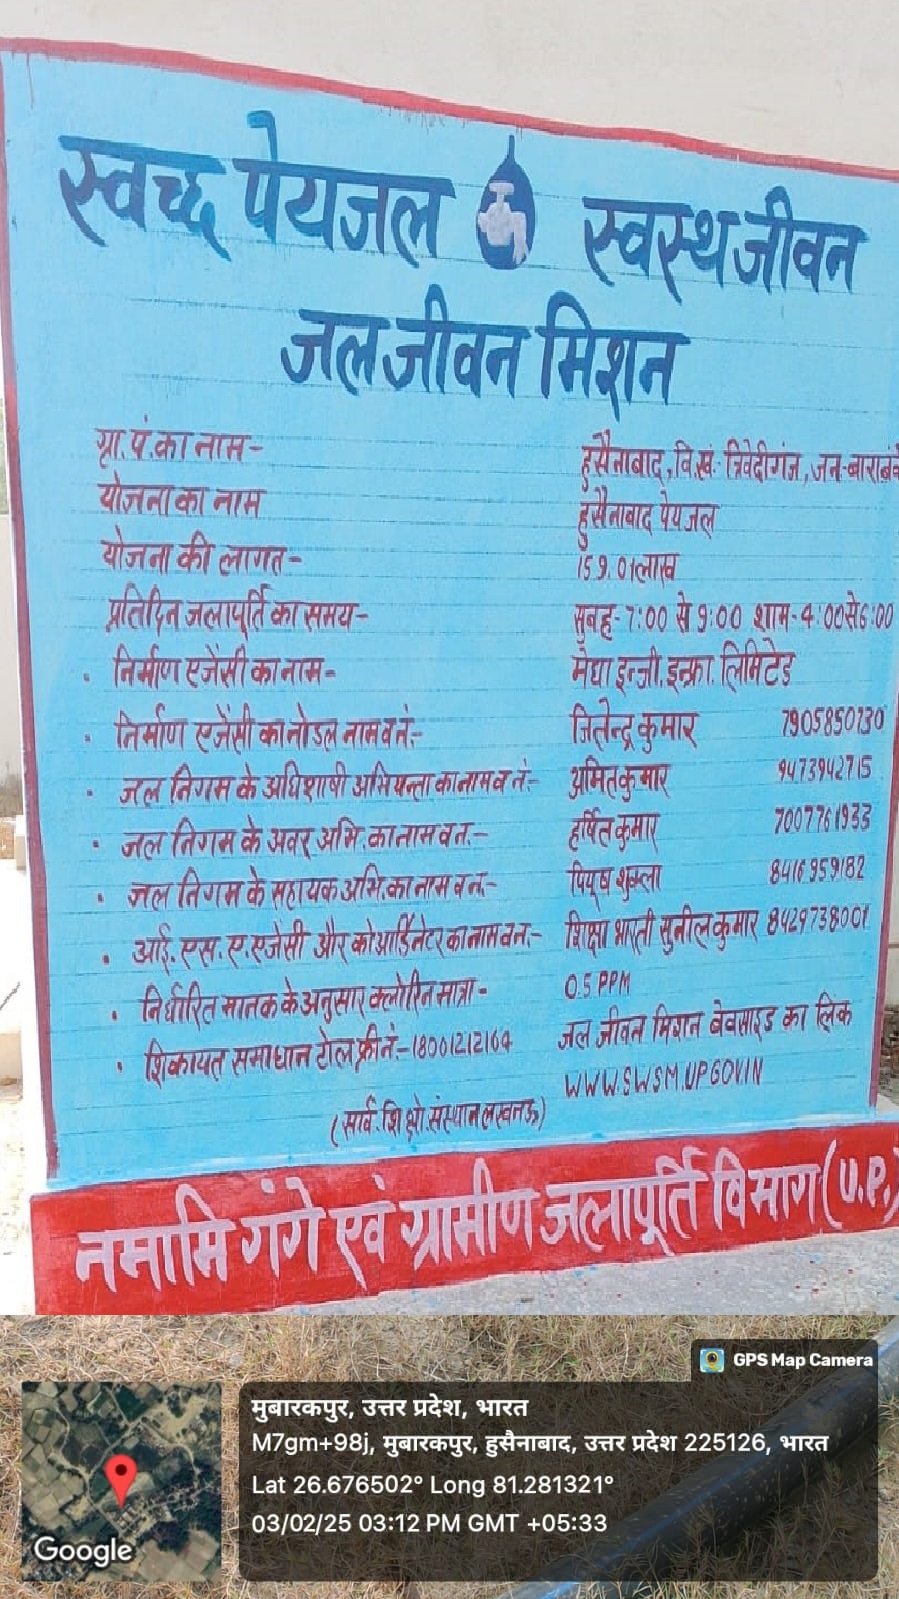 स्वच्छ पेयजल स्वस्थ जीवन
जल जीवन मिशन
ग्रा.पं.का नाम- हुसैनाबाद, वि.ख.- त्रिवेदीगंज, जन.-बाराबंकी
योजना का नाम हुसैनाबाद पेयजल
योजना की लागत- 159.01लाख
प्रतिदिन जलापूर्ति का समय- सुबह- 7:00 से 9:00 शाम- 4:00 से 6:00
• निर्माण एजेंसी का नाम- मेघा इन्जी. इन्फ्रा. लिमिटेड
• निर्माण एजेंसी का नोडल नाम व नं:- जितेन्द्र कुमार 7905850730
• जल निगम के अधिशाषी अभियन्ता का नाम व नं:- अमित कुमार 9473942715
• जल निगम के अवर अभि. का नाम व न.- हर्षित कुमार 7007761933
• जल निगम के सहायक अभि. का नाम व न.- पियूष शुक्ला 8416959182
• आई. एस. ए. एजेंसी और कोआर्डिनेटर का नाम व न.- शिक्षा भारती सुनील कुमार 8429738001
• निर्धारित मानक के अनुसार क्लोरिन मात्रा- 0.5 PPM
• शिकायत समाधान टोल फ्री नं:- 18001212164 जल जीवन मिशन बेवसाइड का लिंक
WWW.SWSM.UP.GOV.IN
(सार्व. शि.क्षो. संस्थान लखनऊ)
नमामि गंगे एवं ग्रामीण जलापूर्ति विभाग (U.P.)
GPS Map Camera
मुबारकपुर, उत्तर प्रदेश, भारत
M7gm+98j, मुबारकपुर, हुसैनाबाद, उत्तर प्रदेश 225126, भारत
Lat 26.676502° Long 81.281321°
03/02/25 03:12 PM GMT +05:33
Google